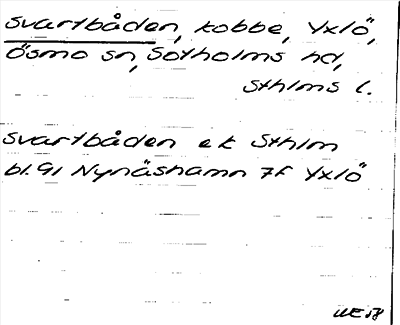 Svartbåden, kobbe, Yxlö,
Ösmo sn, Sotholms hd,
Sthlms l.
Svartbåden ek Sthlm
bl. 91 Nynäshamn 7f Yxlö